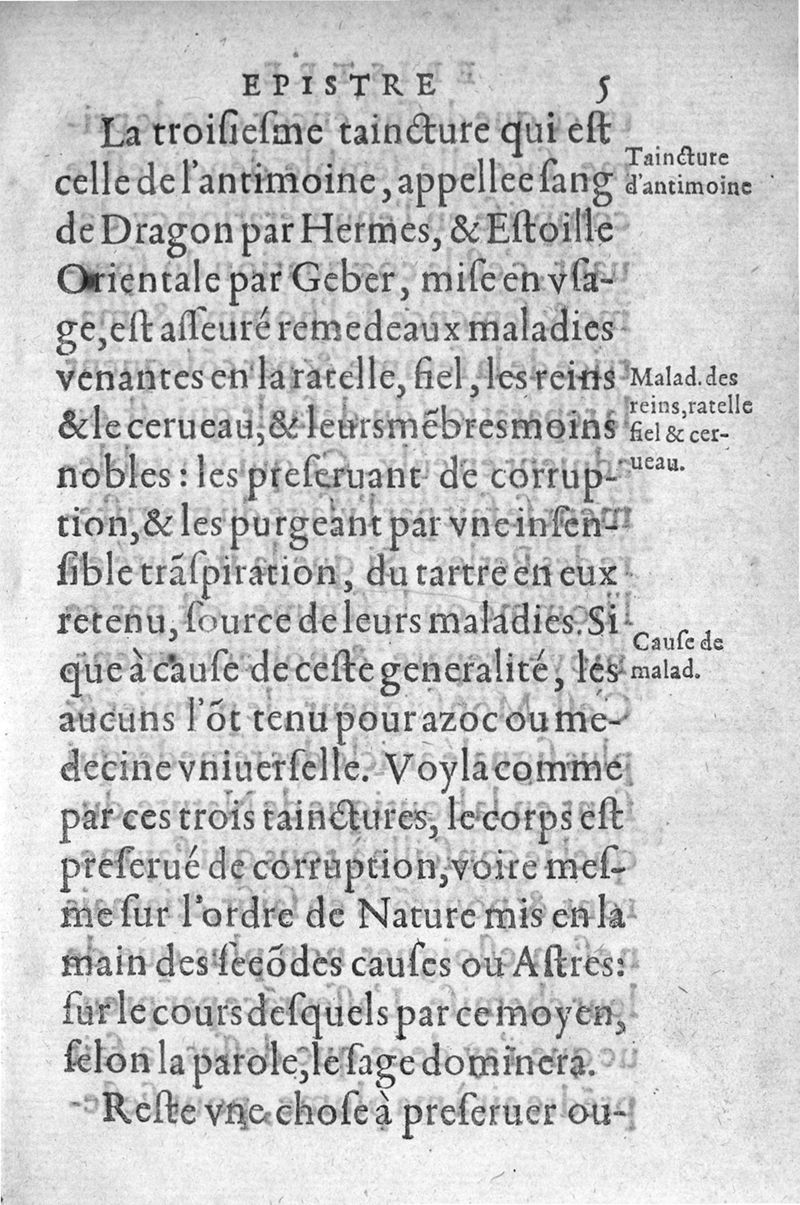 EPISTRE 5
La troiſieſme taincture qui eſt
celle de l'antimoine, appellee ſang
de Dragon par Hermes, & Eſtoille
Orientale par Geber, miſe en vſa-
ge, eſt aſſeuré remede aux maladies
venantes en la ratelle, fiel, les reins
& le cerueau, & leurs mẽbres moins
nobles : les preſeruant de corrup-
tion, & les purgeant par vne inſen-
ſible trãſpiration, du tartre en eux
retenu, ſource de leurs maladies. Si
que à cauſe de ceſte generalité, les
aucuns l'õt tenu pour azoc ou me-
decine vniuerſelle. Voyla comme
par ces trois tainctures, le corps eſt
preſerué de corruption, voire meſ-
me ſur l'ordre de Nature mis en la
main des ſecõdes cauſes ou Aſtres:
ſur le cours deſquels par ce moyen,
ſelon la parole, le ſage dominera.
Reſte vne choſe à preſeruer ou-
Taincture
d'antimoine
Malad. des
reins, ratelle
fiel & cer-
ueau.
Cauſe de
malad.